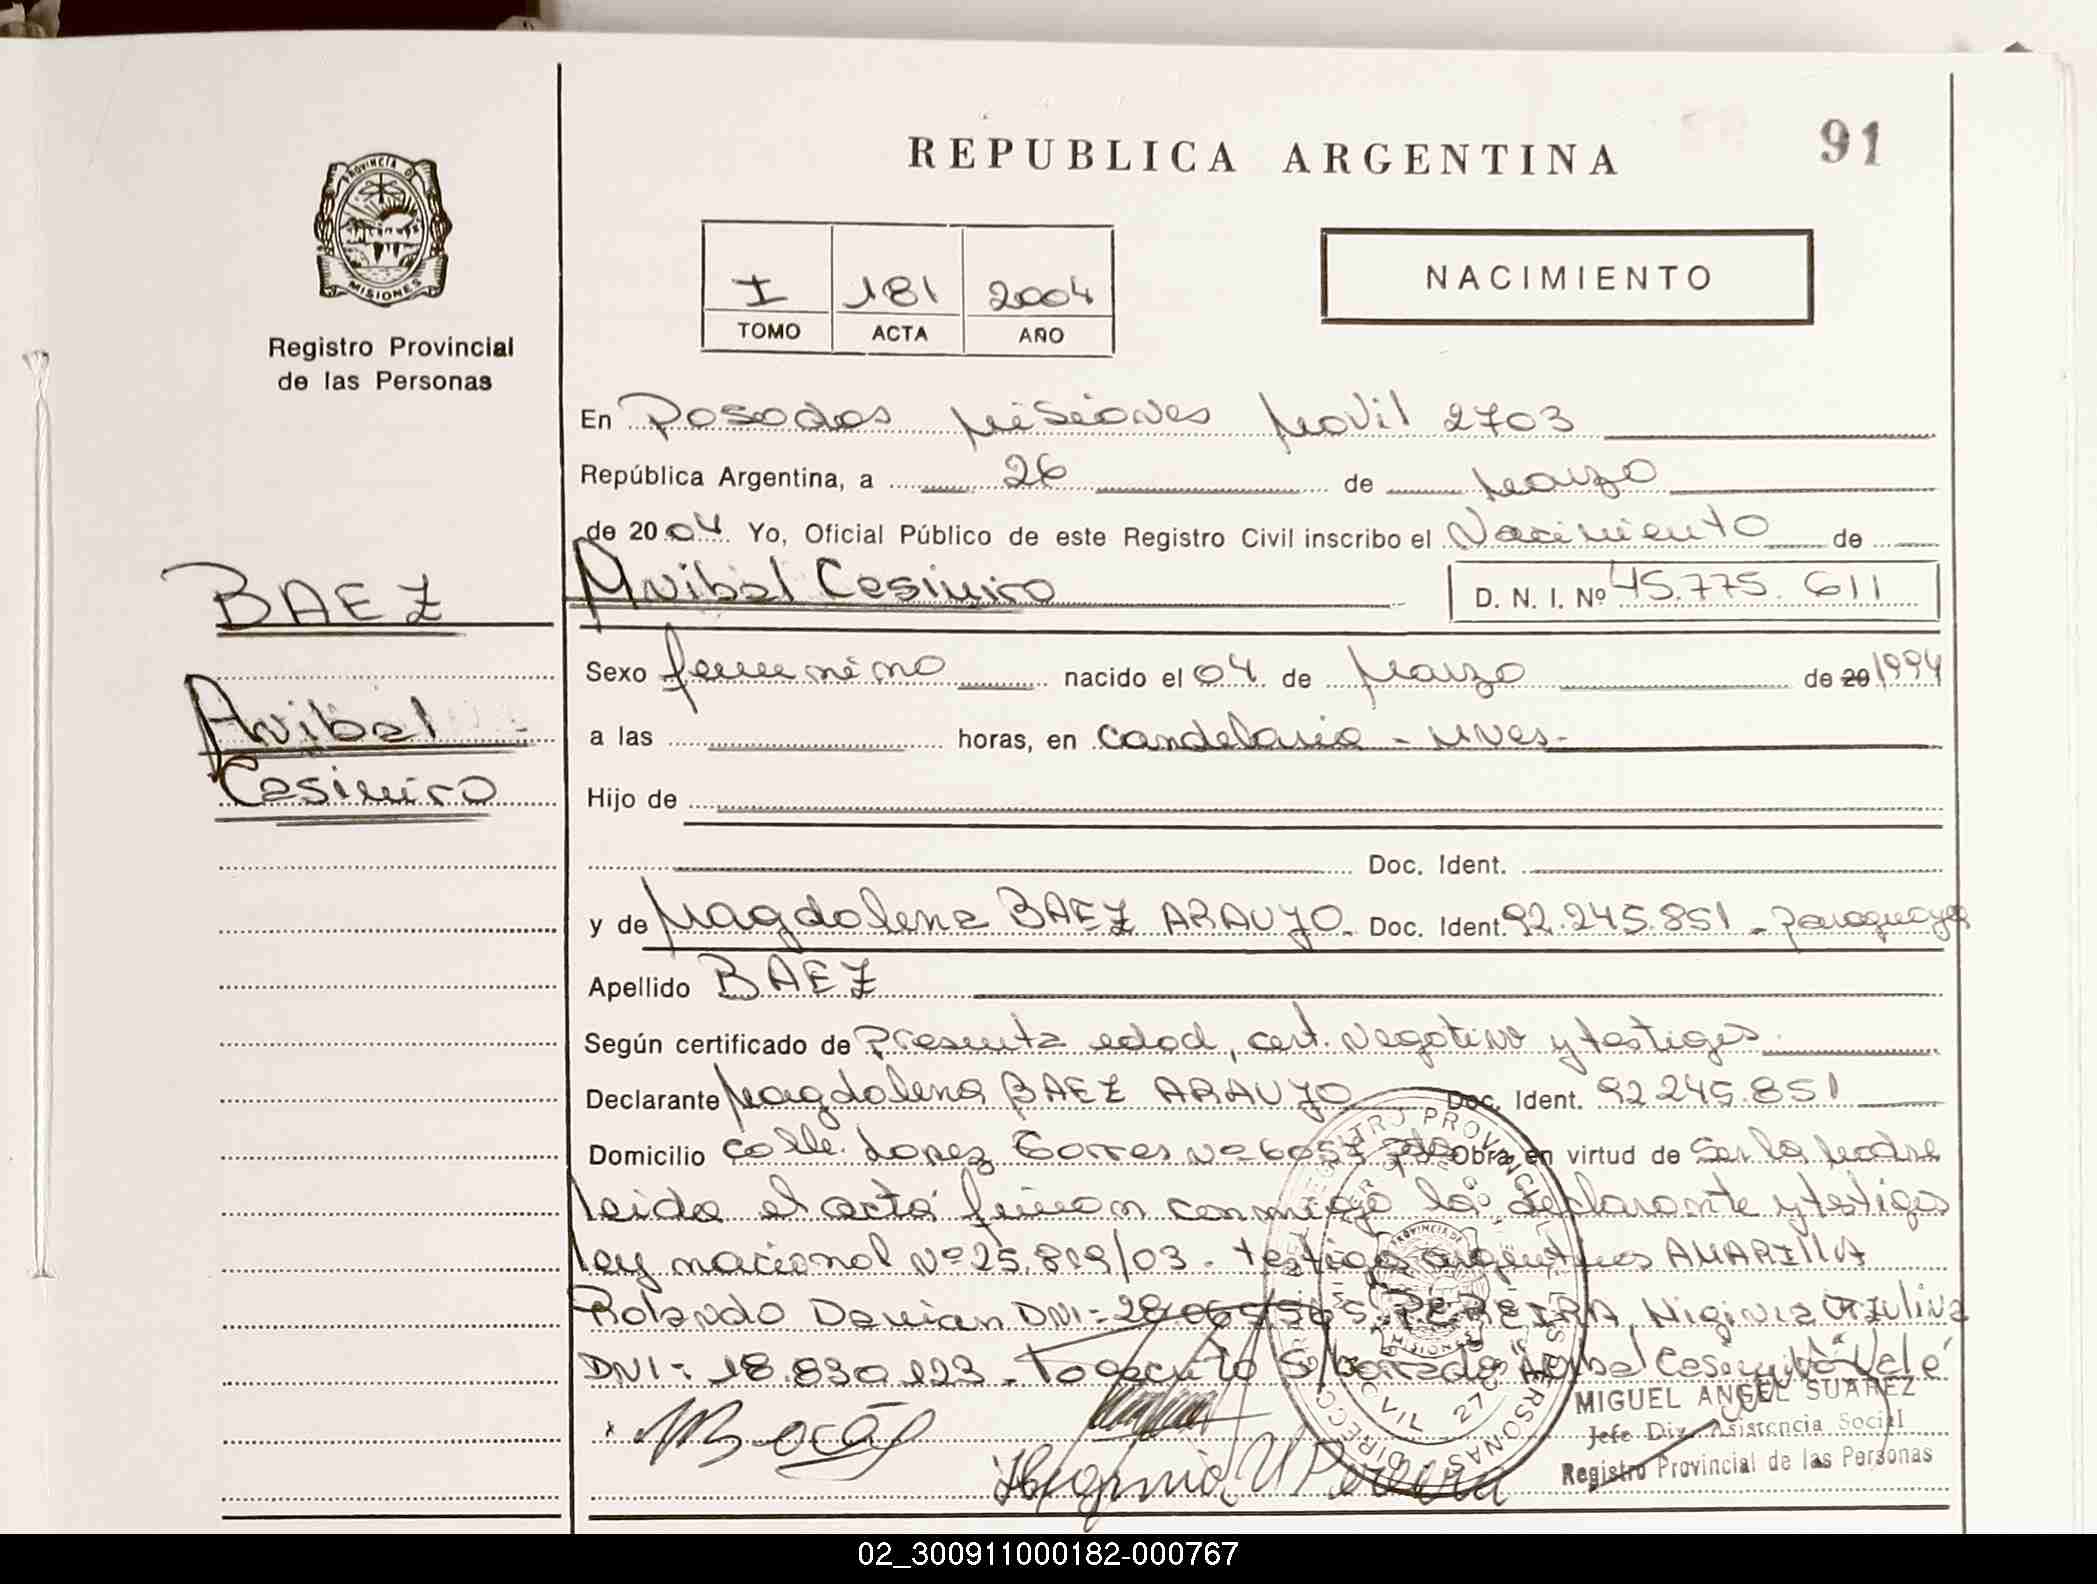 REPUBLICA ARGENTINA
91
PROVINCIA DE
MISIONES
Registro Provincial
de las Personas
I 181 2004
TOMO ACTA AÑO
NACIMIENTO
En Posadas Misiones Movil 2703
República Argentina, a 26 de Marzo
de 2004 Yo, Oficial Público de este Registro Civil inscribo el Nacimiento de
BAEZ
Anibal Casimiro
D. N. I. Nº 45.775.611
Sexo femenino nacido el 04 de Marzo de 20 1994
Anibal
Casimiro
a las horas, en Candelaria - Mnes.
Hijo de
Doc. Ident.
y de Magdalena BAEZ ARAUJO Doc. Ident. 92.245.851 - paraguaya
Apellido BAEZ
Según certificado de Presunta edad, cert. Negativo y testigos
Declarante Magdalena BAEZ ARAUJO Doc. Ident. 92.245.851
Domicilio Calle Lopez Torres Nº 6057 Pdas Obra en virtud de Ser la Madre
leida el acta firman conmigo la declarante y testigos
ley nacional Nº 25.819/03 - testigos argentinos AMARILLA
Rolando Damian DNI: PEREIRA Higinia
DNI: 18.830.123 - Vale
MIGUEL ANGEL SUAREZ
Jefe Div. Asistencia Social
Registro Provincial de las Personas
Higinia U Pereira
02_300911000182-000767